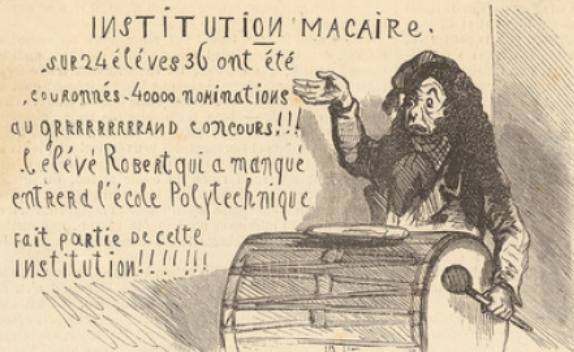 INSTITUTION MACAIRE.
SUR 24 éléves 36 ont été
couronnés - 40000 nominations
au GRRRRRRRRRAND concours!!!
l'élévé Robert qui a manqué
entrer a l'école Polytechnique
fait partie de cette
institution!!!!!!!